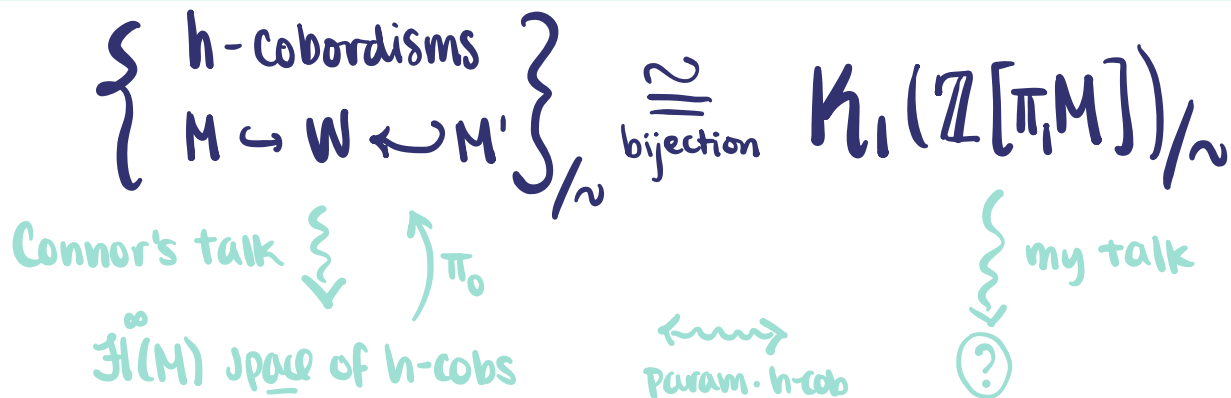 { h-cobordisms
M ↪ W ↩ M' }/~ ≅ K₁(ℤ[π₁M])/~
bijection
Connor's talk π₀ my talk
ℋ^∞(M) space of h-cobs ↔ ?
param. h-cob